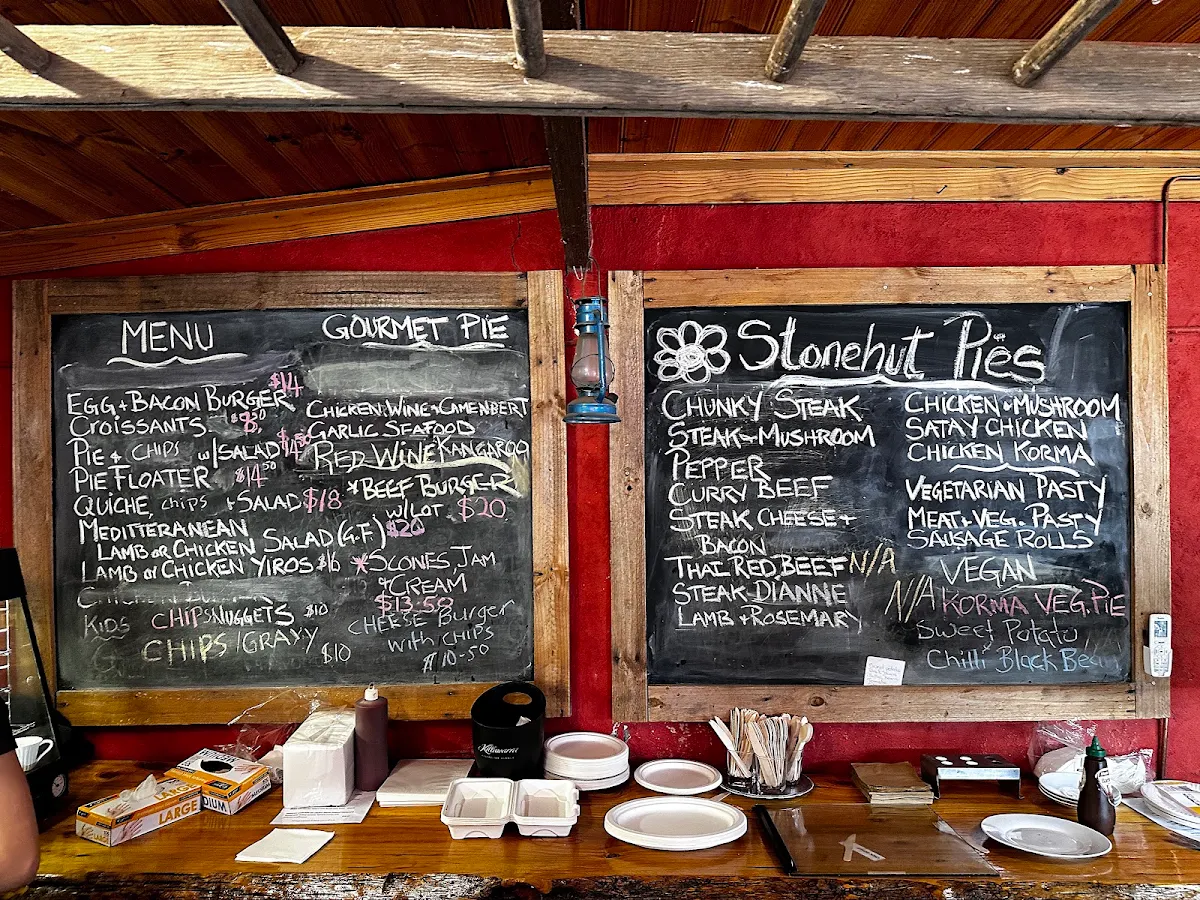 MENU
EGG + BACON BURGER $14
CROISSANTS $8.50
PIE + CHIPS w/SALAD
PIE FLOATER $14.50
QUICHE, chips + SALAD $18
MEDITTERANEAN
LAMB OR CHICKEN SALAD (G.F) $20
LAMB or CHICKEN YIROS $16
KIDS CHIPS NUGGETS $10
CHIPS/GRAVY $10
GOURMET PIE
CHICKEN, WINE + CAMENBERT
GARLIC SEAFOOD
RED WINE KANGAROO
*BEEF BURGER
w/LOT. $20
*SCONES, JAM
+ CREAM
$13.50
CHEESE Burger
with CHIPS
10-50
Stonehut Pies
CHUNKY STEAK
STEAK - MUSHROOM
PEPPER
CURRY BEEF
STEAK CHEESE +
BACON
THAI RED BEEF N/A
STEAK DIANNE
LAMB + ROSEMARY
CHICKEN + MUSHROOM
SATAY CHICKEN
CHICKEN KORMA
VEGETARIAN PASTY
MEAT + VEG. PASTY
SAUSAGE ROLLS
VEGAN
N/A KORMA VEG. PIE
Sweet Potato
Chilli Black Bean
LARGE
MEDIUM